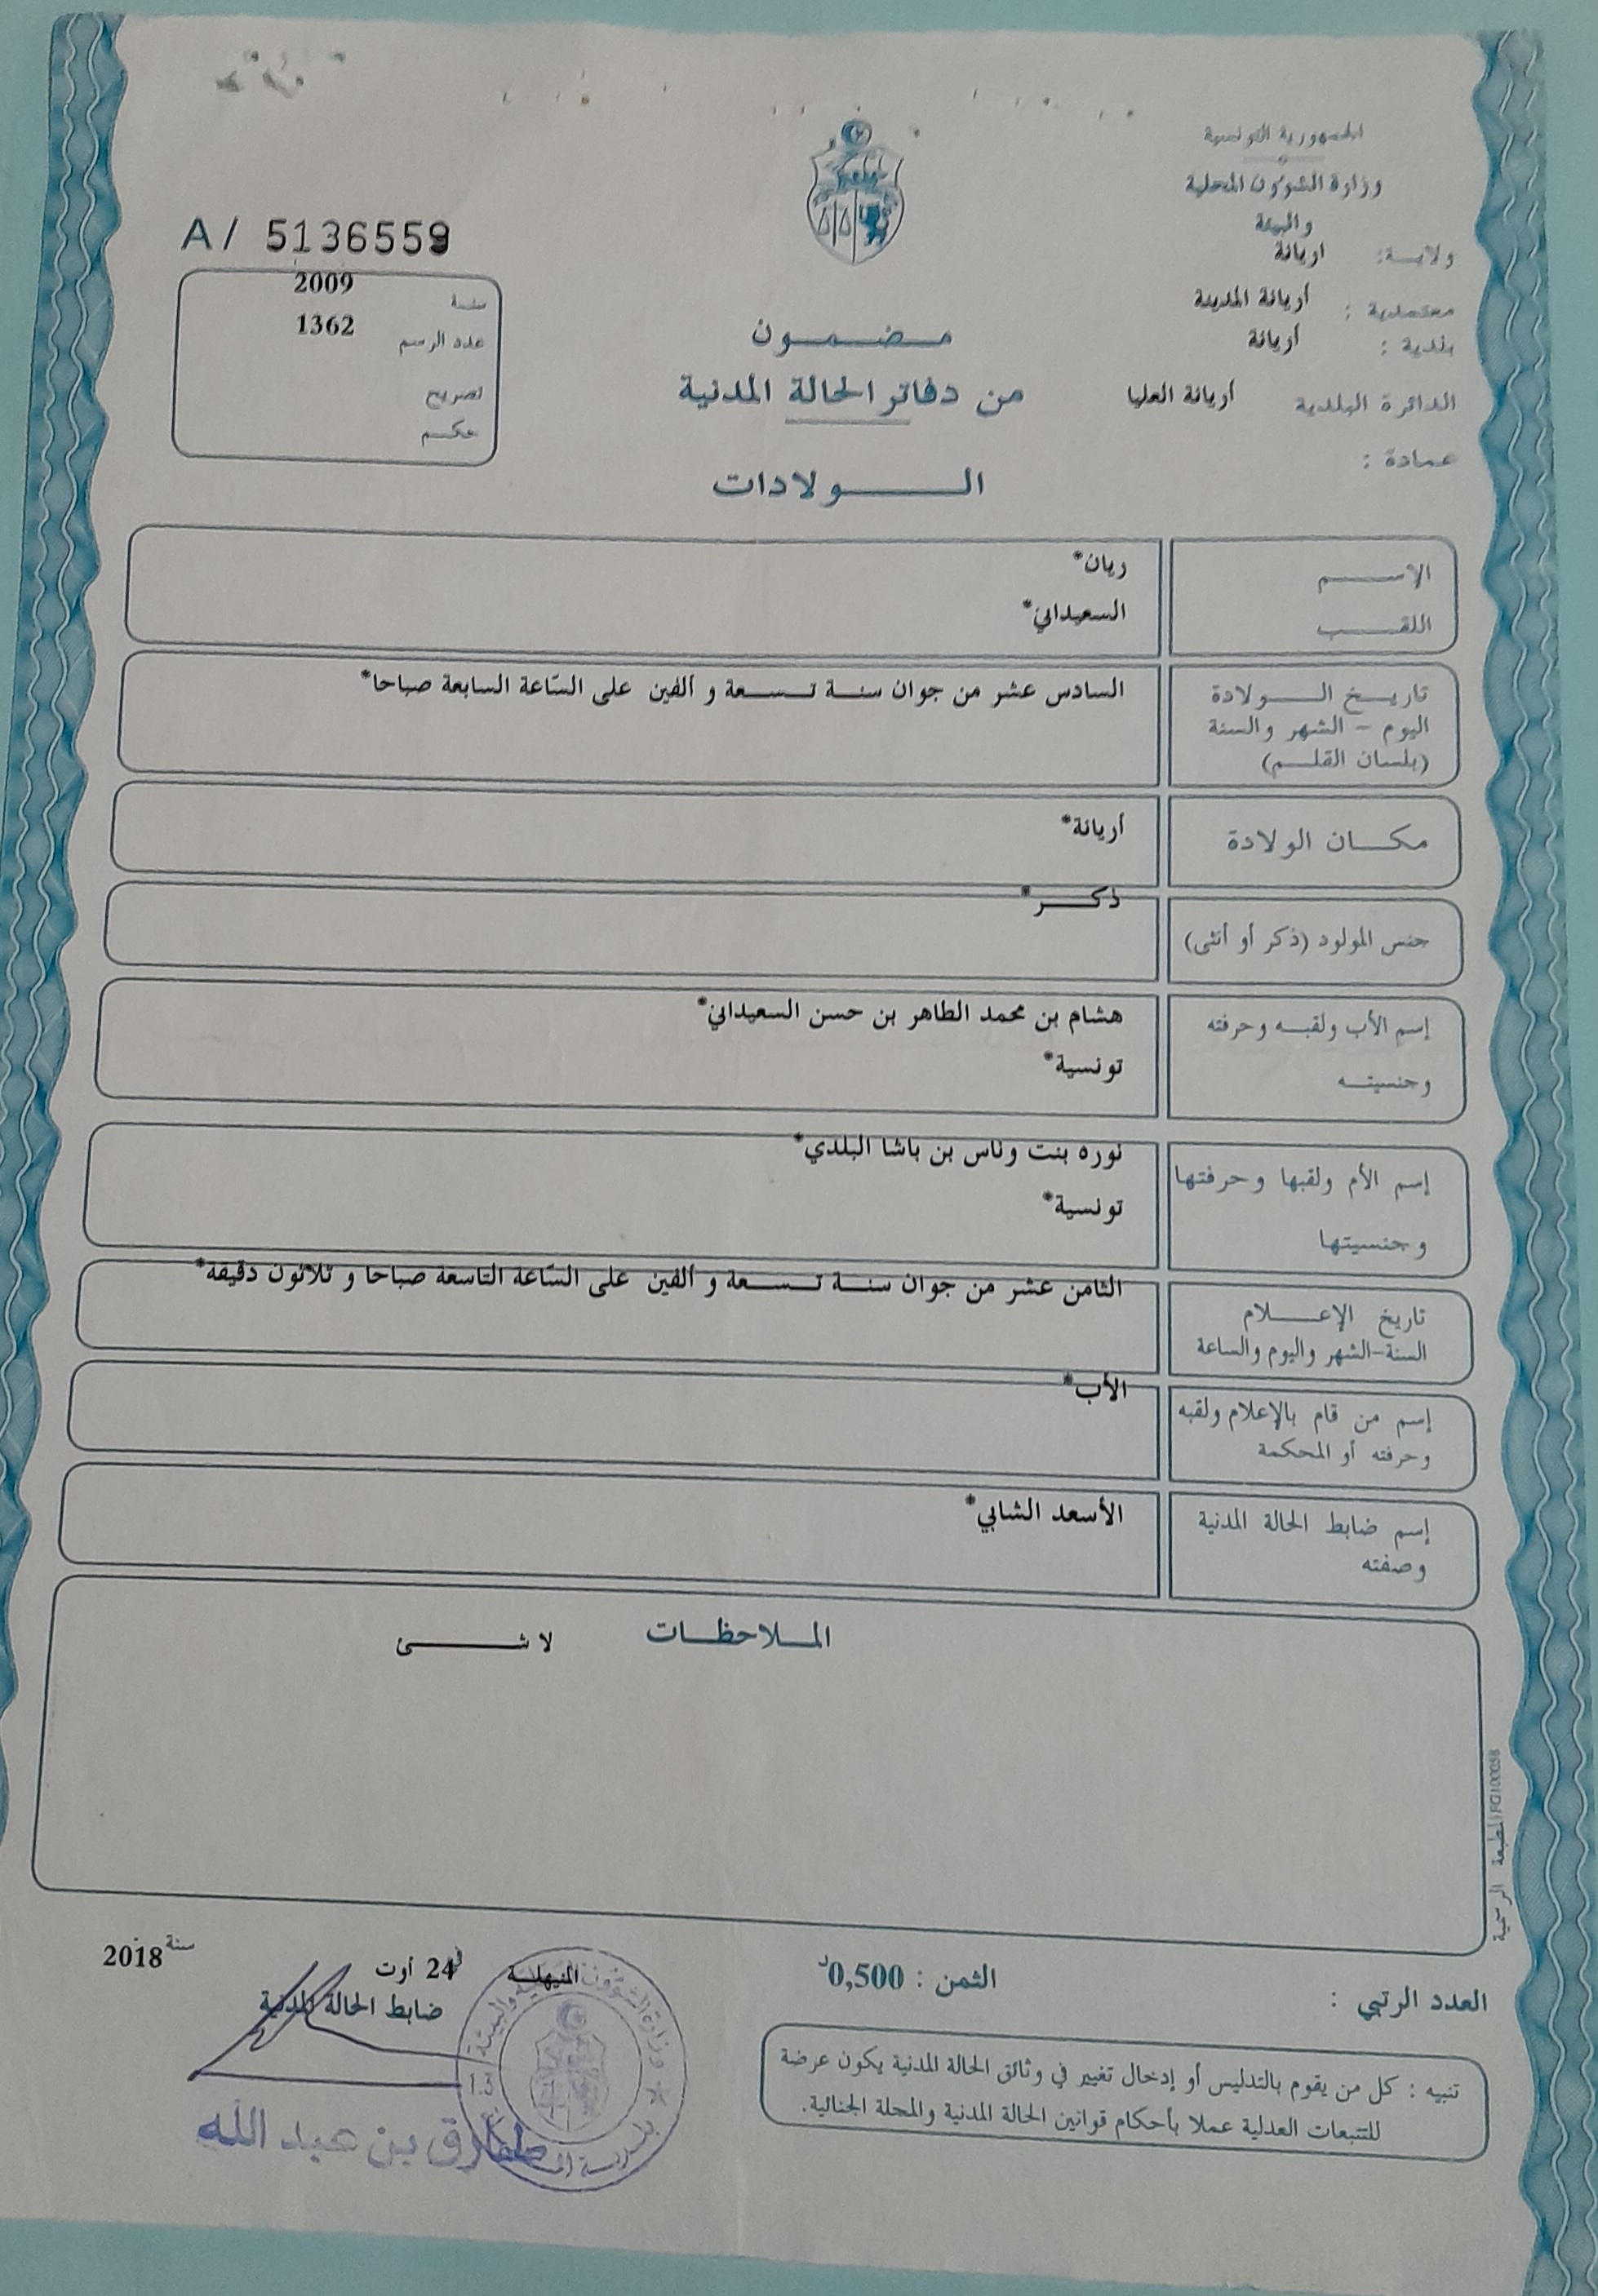 الجمهورية التونسية
وزارة الشؤون المحلية
والبيئة
ولاية: اريانة
معتمدية : أريانة المدينة
بلدية : أريانة
الدائرة البلدية أريانة العليا
عمادة :
A/ 5136559
سنة 2009
عدد الرسم 1362
تصريح
حكم
مضمون
من دفاتر الحالة المدنية
الولادات
الاسم ريان*
اللقب السعيداني*
تاريخ الولادة السادس عشر من جوان سنة تسعة و ألفين على السّاعة السابعة صباحا*
اليوم - الشهر والسنة
(بلسان القلم)
مكان الولادة أريانة*
جنس المولود (ذكر أو أنثى) ذكر*
إسم الأب ولقبه وحرفته هشام بن محمد الطاهر بن حسن السعيداني*
وجنسيته تونسية*
إسم الأم ولقبها وحرفتها نوره بنت وناس بن باشا البلدي*
وجنسيتها تونسية*
تاريخ الإعلام الثامن عشر من جوان سنة تسعة و ألفين على السّاعة التاسعة صباحا و ثلاثون دقيقة*
السنة-الشهر واليوم والساعة
إسم من قام بالإعلام ولقبه الأب*
وحرفته أو المحكمة
إسم ضابط الحالة المدنية الأسعد الشابي*
وصفته
الملاحظات لا شئ
المطبعة الرسمية FG100058
العدد الرتبي :
الثمن : 0,500د
المنيهلة في 24 أوت سنة 2018
ضابط الحالة المدنية
طارق بن عبد الله
تنبيه : كل من يقوم بالتدليس أو إدخال تغيير في وثائق الحالة المدنية يكون عرضة
للتتبعات العدلية عملا بأحكام قوانين الحالة المدنية والمجلة الجنائية.